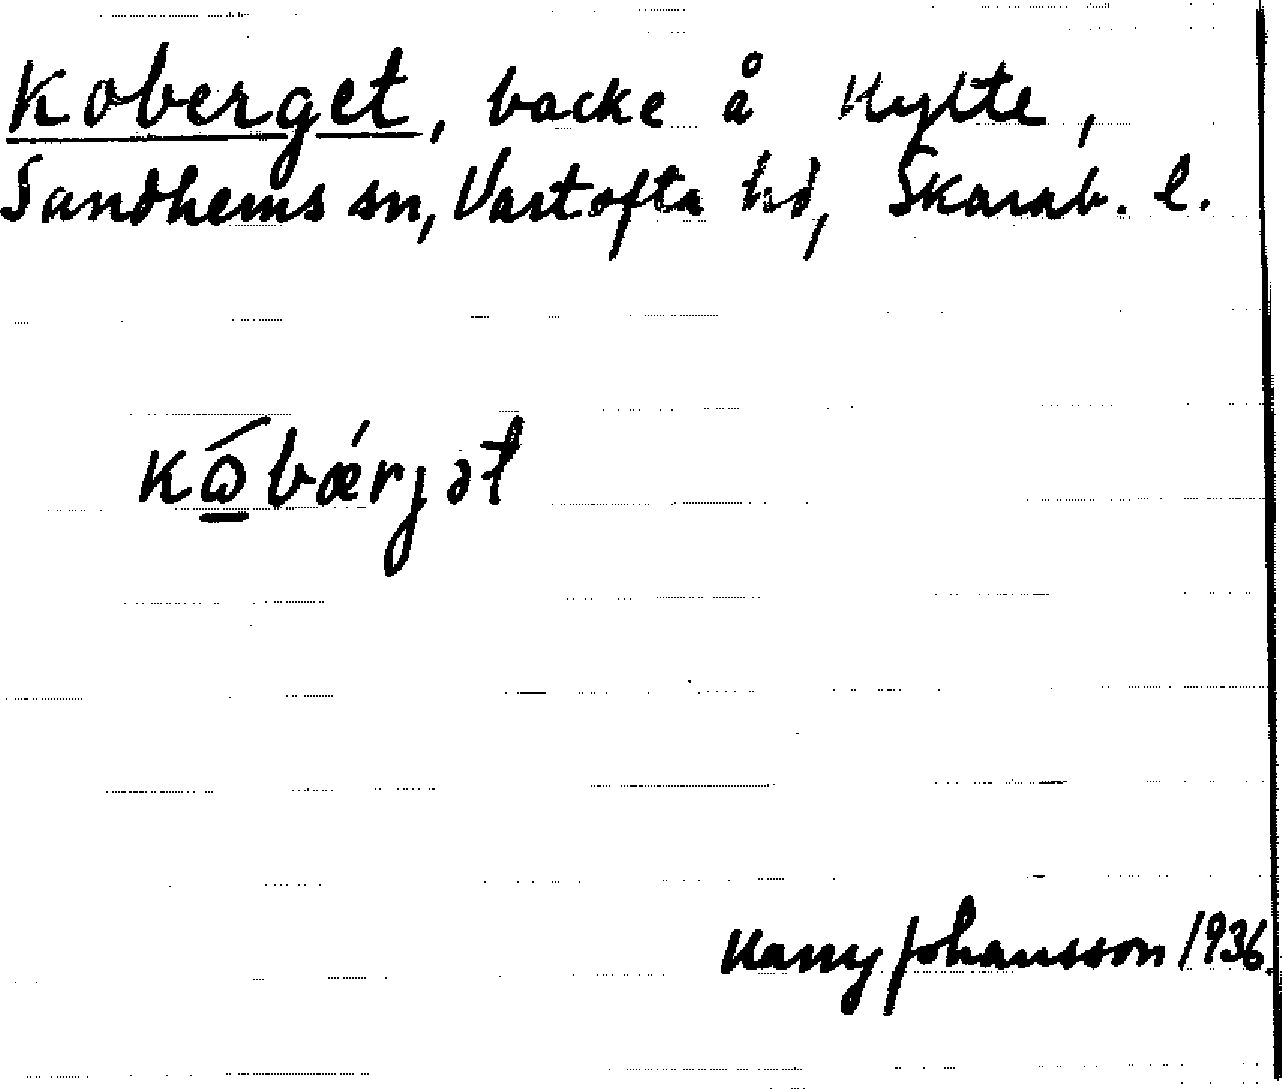 Koberget, backe å Hylte,
Sandhems sn, Vartofta hd, Skarab. l.
kώ̲bǽrjət
Harry Johansson 1936.